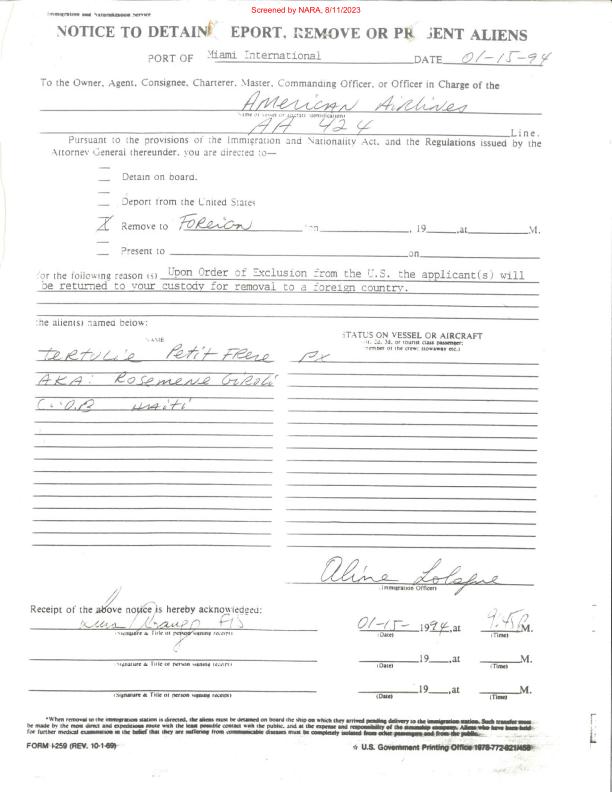 Screened by NARA, 8/11/2023
Immigration and Naturalization Service
NOTICE TO DETAIN EPORT, REMOVE OR PR SENT ALIENS
PORT OF Miami International DATE 01-15-94
To the Owner, Agent, Consignee, Charterer, Master, Commanding Officer, or Officer in Charge of the
American Airlines
AA 424 Line.
Pursuant to the provisions of the Immigration and Nationality Act, and the Regulations issued by the
Attorney General thereunder, you are directed to—
Detain on board.
Deport from the United States
X Remove to Foreign on , 19 , at M.
Present to on
for the following reason (s) Upon Order of Exclusion from the U.S. the applicant(s) will
be returned to your custody for removal to a foreign country.
the alien(s) named below:
NAME
STATUS ON VESSEL OR AIRCRAFT
(1st, 2d, 3d, or tourist class passenger;
member of the crew; stowaway etc.)
TERTULIE Petit FRERE PX
AKA: Rosemene
HAITI
Aline
(Immigration Officer)
Receipt of the above notice is hereby acknowledged:
01-15- 1994, at 9:45P M.
(Signature & Title of person signing receipt) (Date) (Time)
19 , at M.
(Signature & Title of person signing receipt) (Date) (Time)
19 , at M.
(Signature & Title of person signing receipt) (Date) (Time)
*When removal to the immigration station is directed, the aliens must be detained on board the ship on which they arrived pending delivery to the immigration station. Such transfer must
be made by the most direct and expeditious route with the least possible contact with the public, and at the expense and responsibility of the steamship company. Aliens who have been held
for further medical examination in the belief that they are suffering from communicable diseases must be completely isolated from other passengers and from the public.
FORM I-259 (REV. 10-1-69) ☆ U.S. Government Printing Office 1978-772-821/458